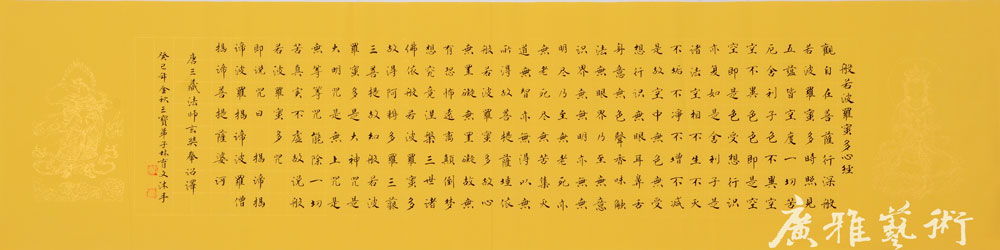 般若波羅蜜多心經
觀自在菩薩行深般
若波羅蜜多時照見
五蘊皆空度一切苦
厄舍利子色不異空
空不異色色即是空
空即是色受想行識
亦復如是舍利子是
諸法空相不生不灭
不垢不淨不增不減
是故空中無色無受
想行識無眼耳鼻舌
身意無色聲香味觸
法無眼界乃至無意
識界無無明亦無無
明尽乃至無老死亦
無老死尽無苦集灭
道無智亦無得以無
所得故菩提薩埵依
般若波羅蜜多故心
無罣礙無罣礙故無
有恐怖遠離顛倒夢
想究竟涅槃三世諸
佛依般若波羅蜜多
故得阿耨多羅三藐
三菩提故知般若波
羅蜜多是大神咒是
大明咒是無上咒是
無等等咒能除一切
苦真實不虛故說般
若波羅蜜多咒
即說咒曰 揭諦揭
諦波羅揭諦波羅僧
揭諦菩提薩婆訶
唐三藏法師玄奘奉詔譯
癸巳年金秋三寶弟子林育文沐手
廣雅藝術